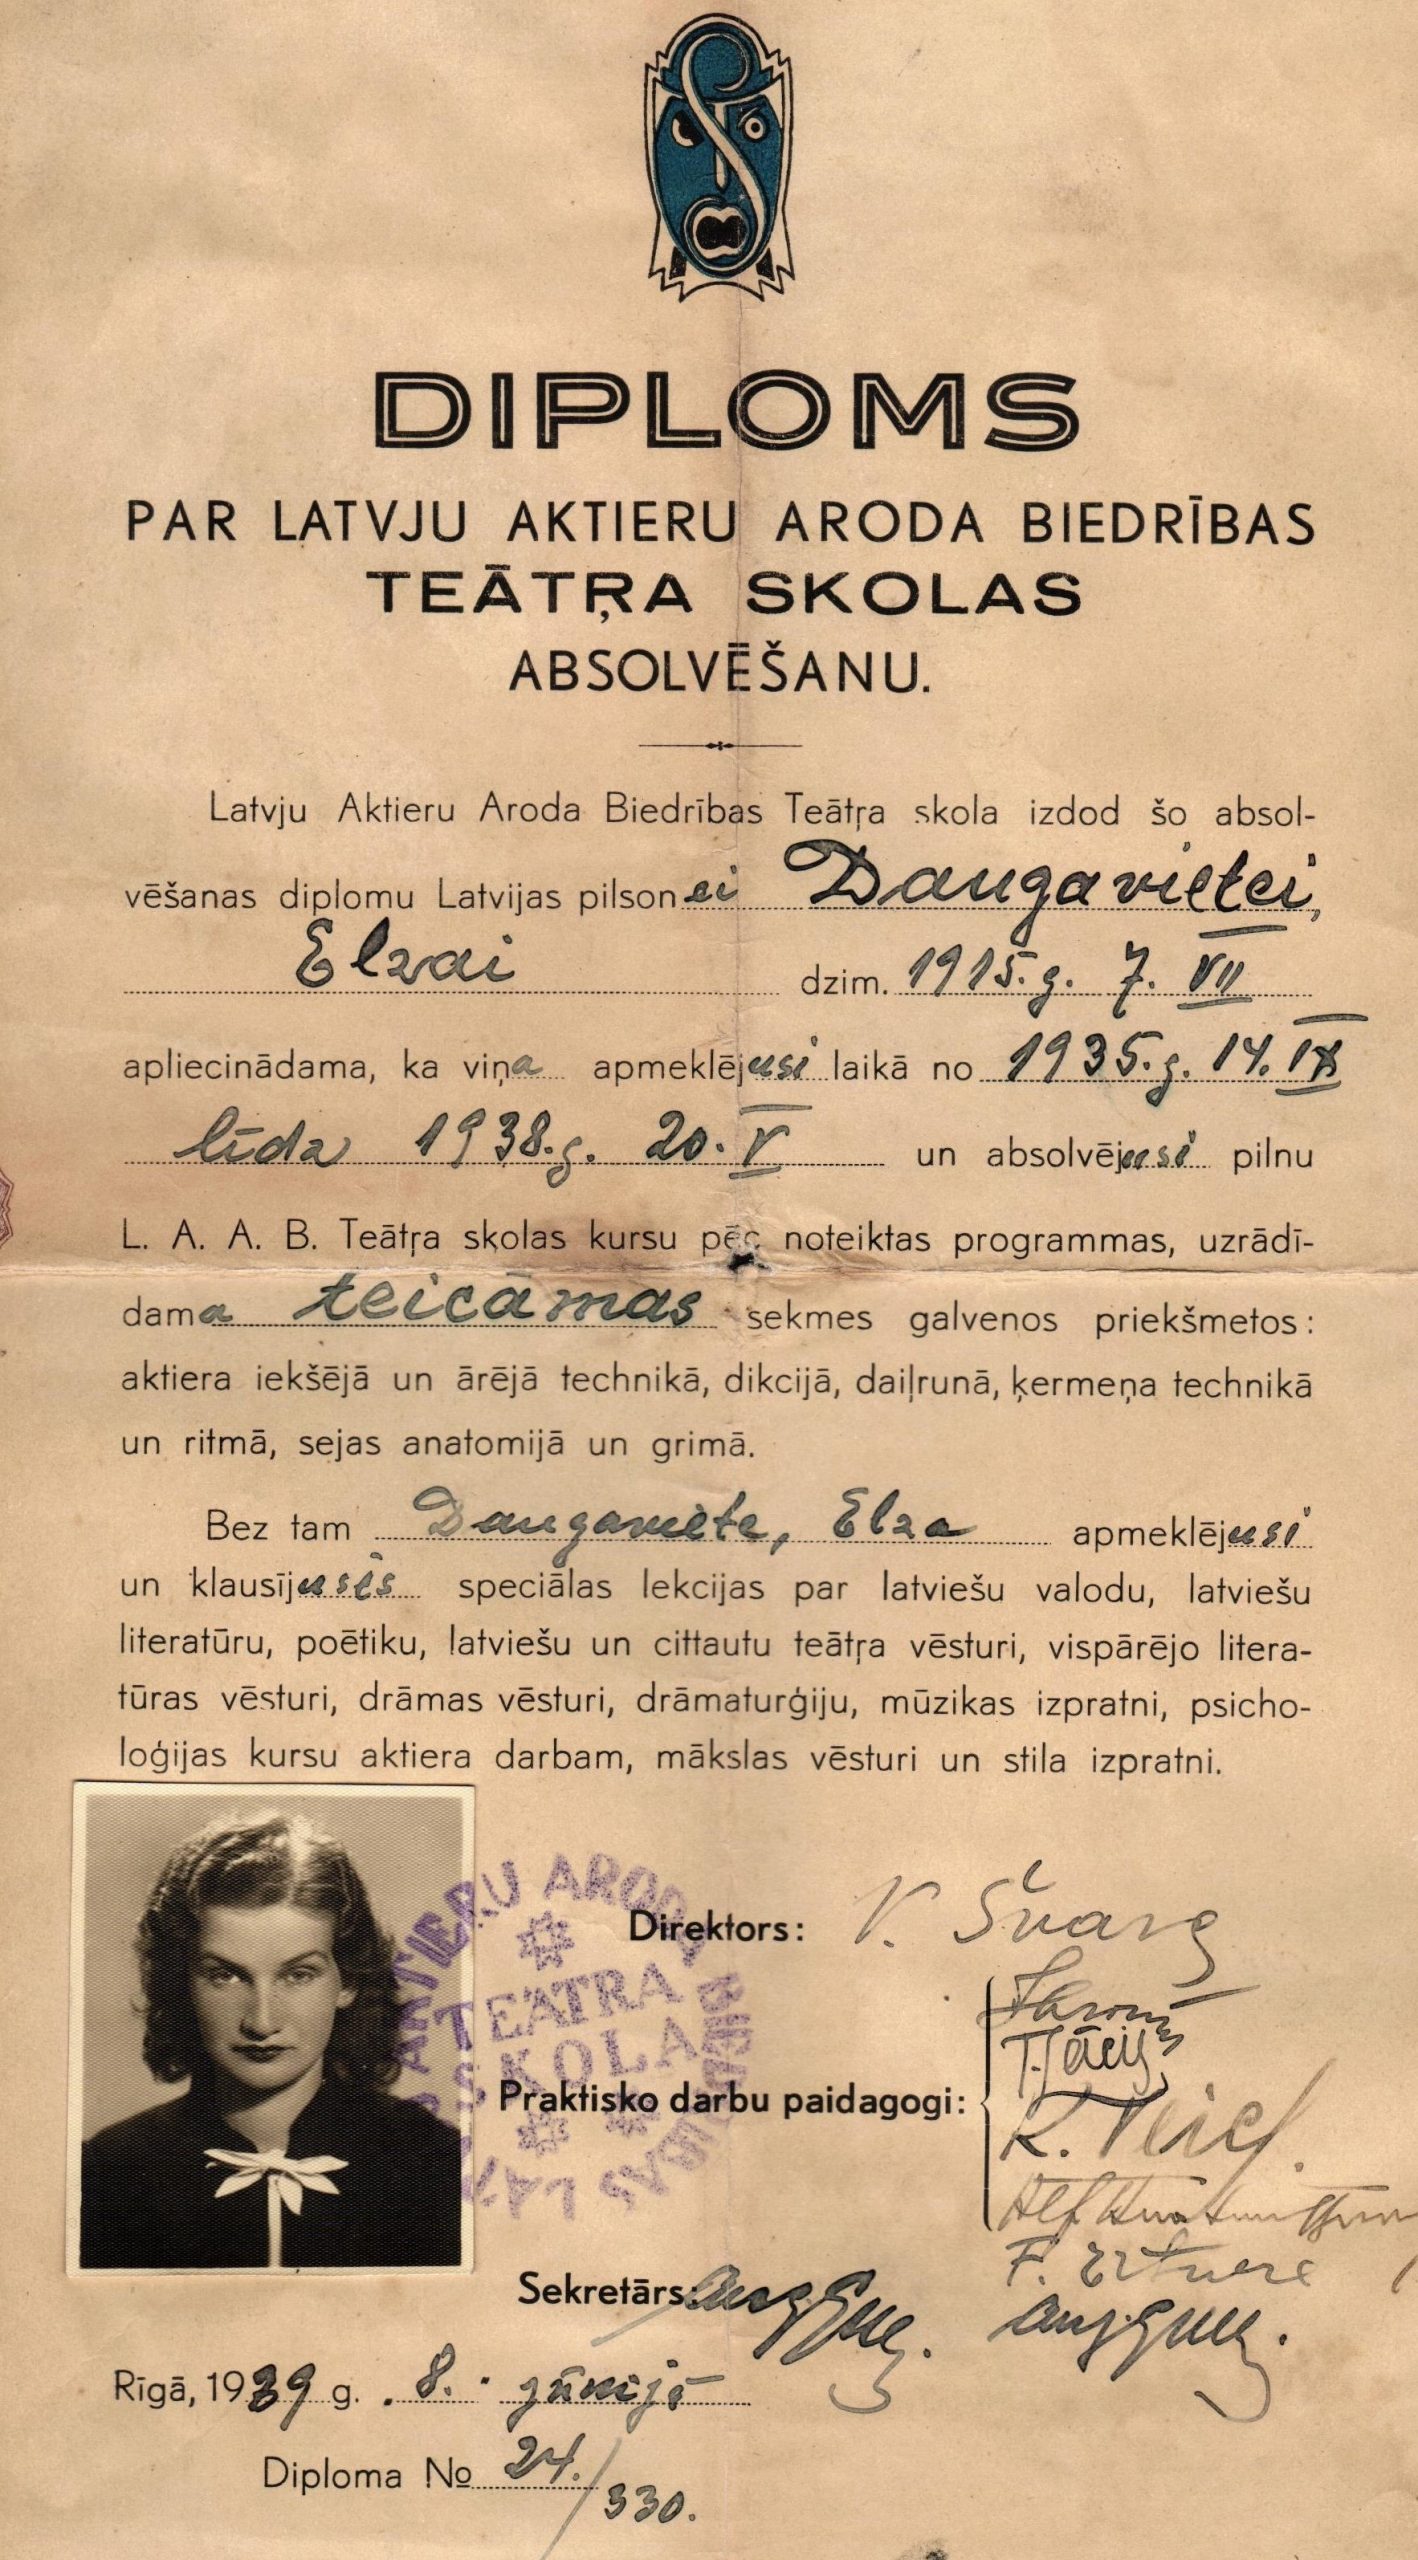 DIPLOMS
PAR LATVJU AKTIERU ARODA BIEDRĪBAS
TEĀTŖA SKOLAS
ABSOLVĒŠANU.
Latvju Aktieru Aroda Biedrības Teātŗa skola izdod šo absol-
vēšanas diplomu Latvijas pilsonei Daugavietei,
Elzai dzim. 1915.g. 7. VII
apliecinādama, ka viņa apmeklējusi laikā no 1935.g. 14. IX
līdz 1938.g. 20. V un absolvējusi pilnu
L. A. A. B. Teātŗa skolas kursu pēc noteiktas programmas, uzrādī-
dama teicamas sekmes galvenos priekšmetos:
aktiera iekšējā un ārējā technikā, dikcijā, daiļrunā, ķermeņa technikā
un ritmā, sejas anatomijā un grimā.
Bez tam Daugaviete, Elza apmeklējusi
un klausījusies speciālas lekcijas par latviešu valodu, latviešu
literatūru, poētiku, latviešu un cittautu teātŗa vēsturi, vispārējo litera-
tūras vēsturi, drāmas vēsturi, drāmaturģiju, mūzikas izpratni, psicho-
loģijas kursu aktiera darbam, mākslas vēsturi un stila izpratni.
AKTIERU ARODA BIEDRĪBAS
TEĀTRA
SKOLA
Direktors: V. Švarcs
Praktisko darbu paidagogi:
T. Lācis
K. Veics
F. Ertnere
Sekretārs:
Rīgā, 1939 g. 8. jūnijā
Diploma No 24./330.